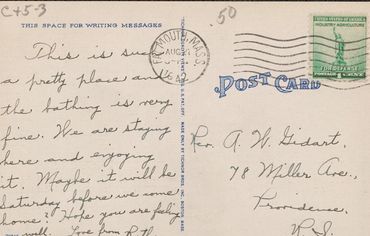 C+5-3
.50
THIS SPACE FOR WRITING MESSAGES
This is such
a pretty place and
the bathing is very
fine. We are staying
here and enjoying
it. Maybe it will be
Saturday before we come
home? Hope you are feeling
well. Love from
FALMOUTH, MASS.
AUG
UNITED STATES OF AMERICA
INDUSTRY AGRICULTURE
FOR DEFENSE
POSTAGE 1 CENT
POST CARD
Rev. A. W. Gidart,
78 Miller Ave.,
Providence,
R.I.